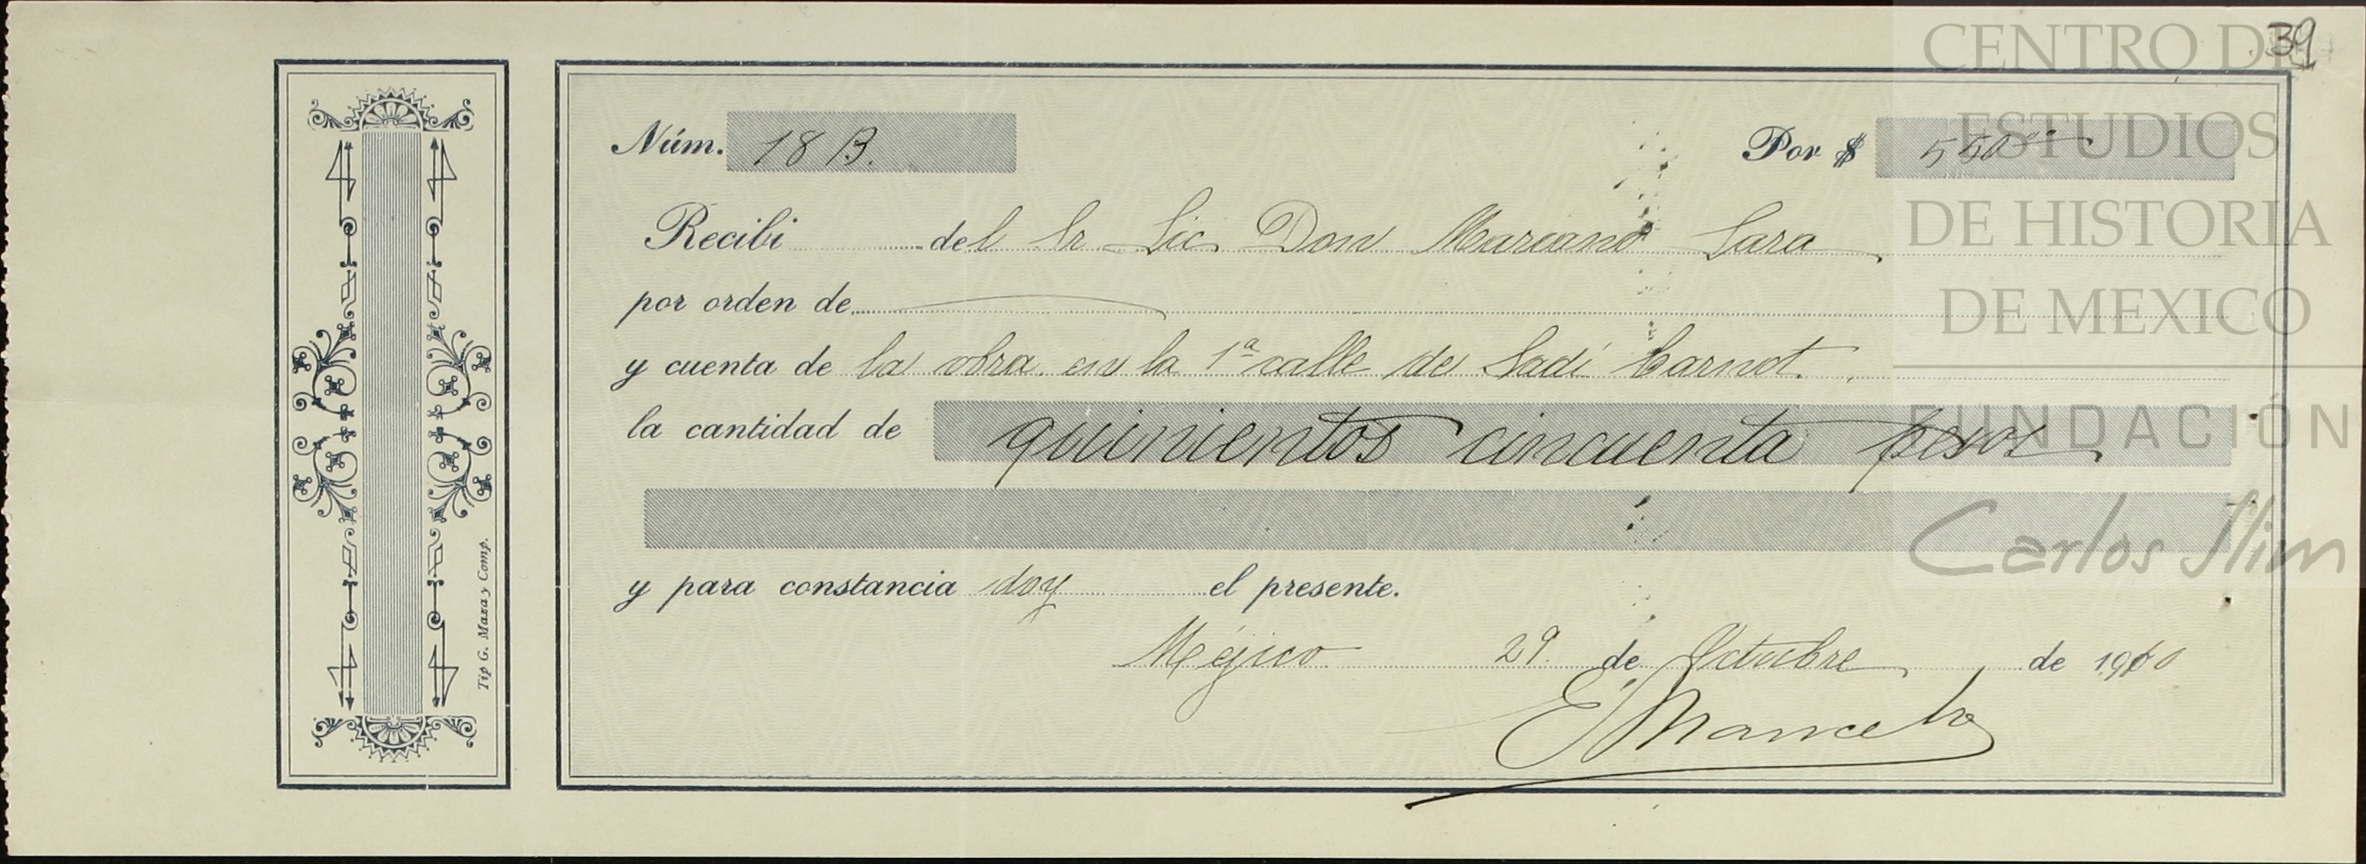 39
CENTRO DE
ESTUDIOS
DE HISTORIA
DE MEXICO
FUNDACIÓN
Carlos Slim
Núm. 18 B. Por $ 550
Recibi del Sr Lic Don Mariano Lara
por orden de
y cuenta de la obra en la 1ª calle de Sadi Carnot.
la cantidad de quinientos cincuenta pesos
y para constancia doy el presente.
Méjico 29 de Octubre de 1900
Tip G. Maza y Comp.